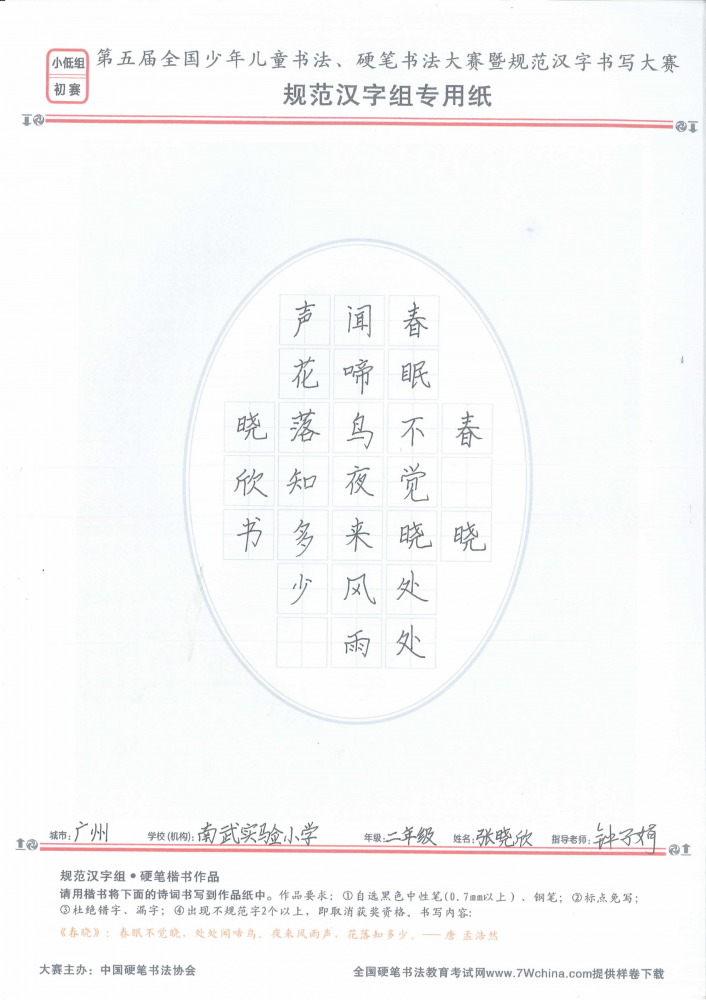 小低组
初赛
第五届全国少年儿童书法、硬笔书法大赛暨规范汉字书写大赛
规范汉字组专用纸
春晓
春眠不觉晓处处
闻啼鸟夜来风雨
声花落知多少
晓欣书
城市:广州 学校(机构):南武实验小学 年级:二年级 姓名:张晓欣 指导老师:钟子娟
规范汉字组•硬笔楷书作品
请用楷书将下面的诗词书写到作品纸中。作品要求：①自选黑色中性笔(0.7mm以上)、钢笔；②标点免写；
③杜绝错字、漏字；④出现不规范字2个以上，即取消获奖资格。书写内容：
《春晓》：春眠不觉晓，处处闻啼鸟。夜来风雨声，花落知多少。——唐 孟浩然
大赛主办：中国硬笔书法协会 全国硬笔书法教育考试网www.7Wchina.com提供样卷下载